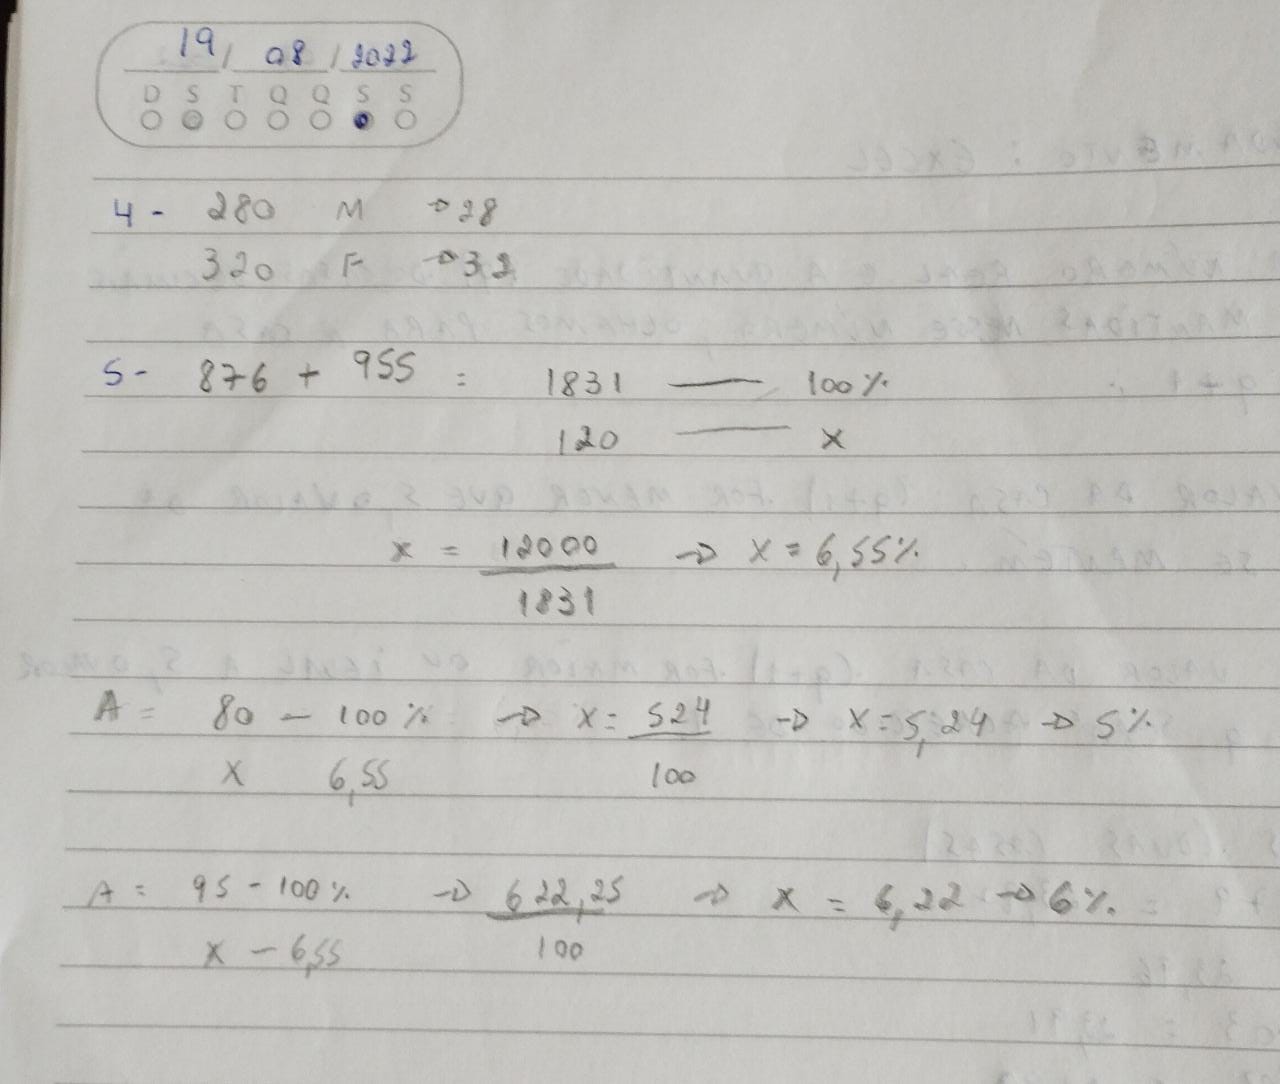 19/ 08 / 2022
D S T Q Q S S
4 - 280 M → 28
320 F → 32
5 - 876 + 955 = 1831 —— 100%
120 —— x
x = 12000 → x = 6,55%
1831
A = 80 — 100% → x = 524 → x = 5,24 → 5%
x 6,55
100
A = 95 - 100% → 622,25 → x = 6,22 → 6%
x — 6,55
100